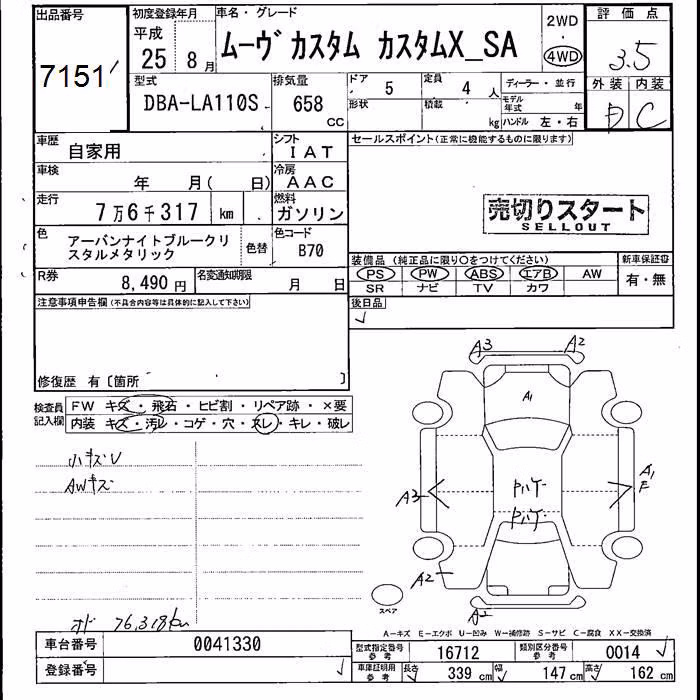 出品番号 初度登録年月 車名・グレード 2WD 評価点
7151 平成 25 8月 ムーヴ カスタム カスタムX_SA 4WD 3.5
型式 排気量 ドア 5 定員 4人 ディーラー・並行 外装 内装
DBA-LA110S 658 CC 形状 積載 kg モデル年式 年 ハンドル 左・右 D C
車歴 自家用 シフト IAT セールスポイント(正常に機能するものに限ります)
車検 年 月( 日) 冷房 AAC
走行 7万6千317 km 燃料 ガソリン 売切りスタート
SELLOUT
色 アーバンナイトブルークリスタルメタリック 色替 色コード B70
装備品(純正品に限り○をつけてください) 新車保証書
R券 8,490円 名変通知期限 月 日 PS PW ABS エアB AW 有・無
SR ナビ TV カワ
注意事項申告欄(不具合内容等は具体的に記入して下さい) 後日品
修復歴 有〔箇所 〕
検査員記入欄 FW キズ・飛石・ヒビ割・リペア跡・×要
内装 キズ・汚レ・コゲ・穴・スレ・キレ・破レ
小キズV
AWキズ
A3 A2
A1
A3 A1 F
A2
A2
スペア
オド 76,318km
A-キズ E-エクボ U-凹み W-補修跡 S-サビ C-腐食 XX-交換済
車台番号 0041330 型式指定番号 参考 16712 類別区分番号 参考 0014
登録番号 車庫証明用 参考 長さ 339 cm 幅 147 cm 高さ 162 cm